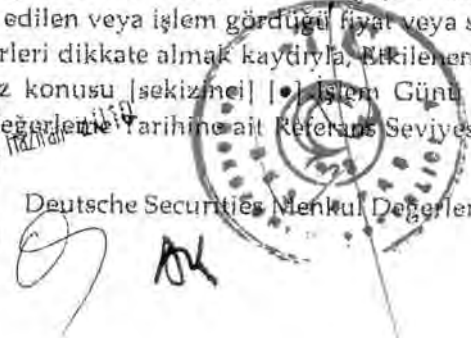 edilen veya işlem gördüğü fiyat veya s
rleri dikkate almak kaydıyla, Etkilenen
z konusu [sekizinci] [●] İşlem Günü
eğerleme Tarihine ait Referans Seviyes
Deutsche Securities Menkul Değerler